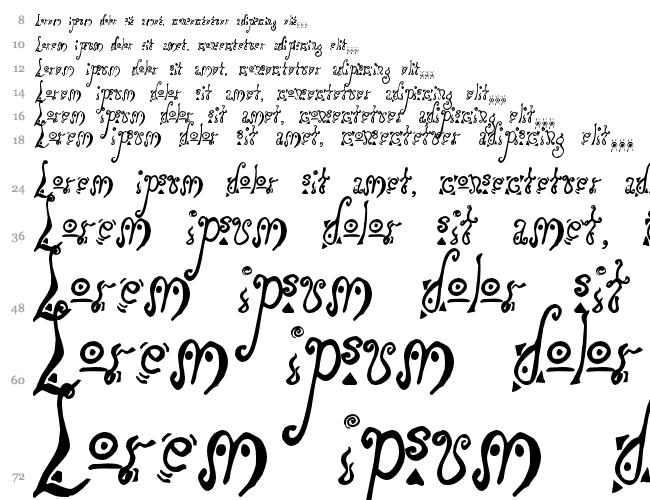 8 Lorem ipsum dolor sit amet, consectetuer adipiscing elit...
10 Lorem ipsum dolor sit amet, consectetuer adipiscing elit...
12 Lorem ipsum dolor sit amet, consectetuer adipiscing elit...
14 Lorem ipsum dolor sit amet, consectetuer adipiscing elit...
16 Lorem ipsum dolor sit amet, consectetuer adipiscing elit...
18 Lorem ipsum dolor sit amet, consectetuer adipiscing elit...
24 Lorem ipsum dolor sit amet, consectetuer ad
36 Lorem ipsum dolor sit amet,
48 Lorem ipsum dolor sit
60 Lorem ipsum dolor
72 Lorem ipsum